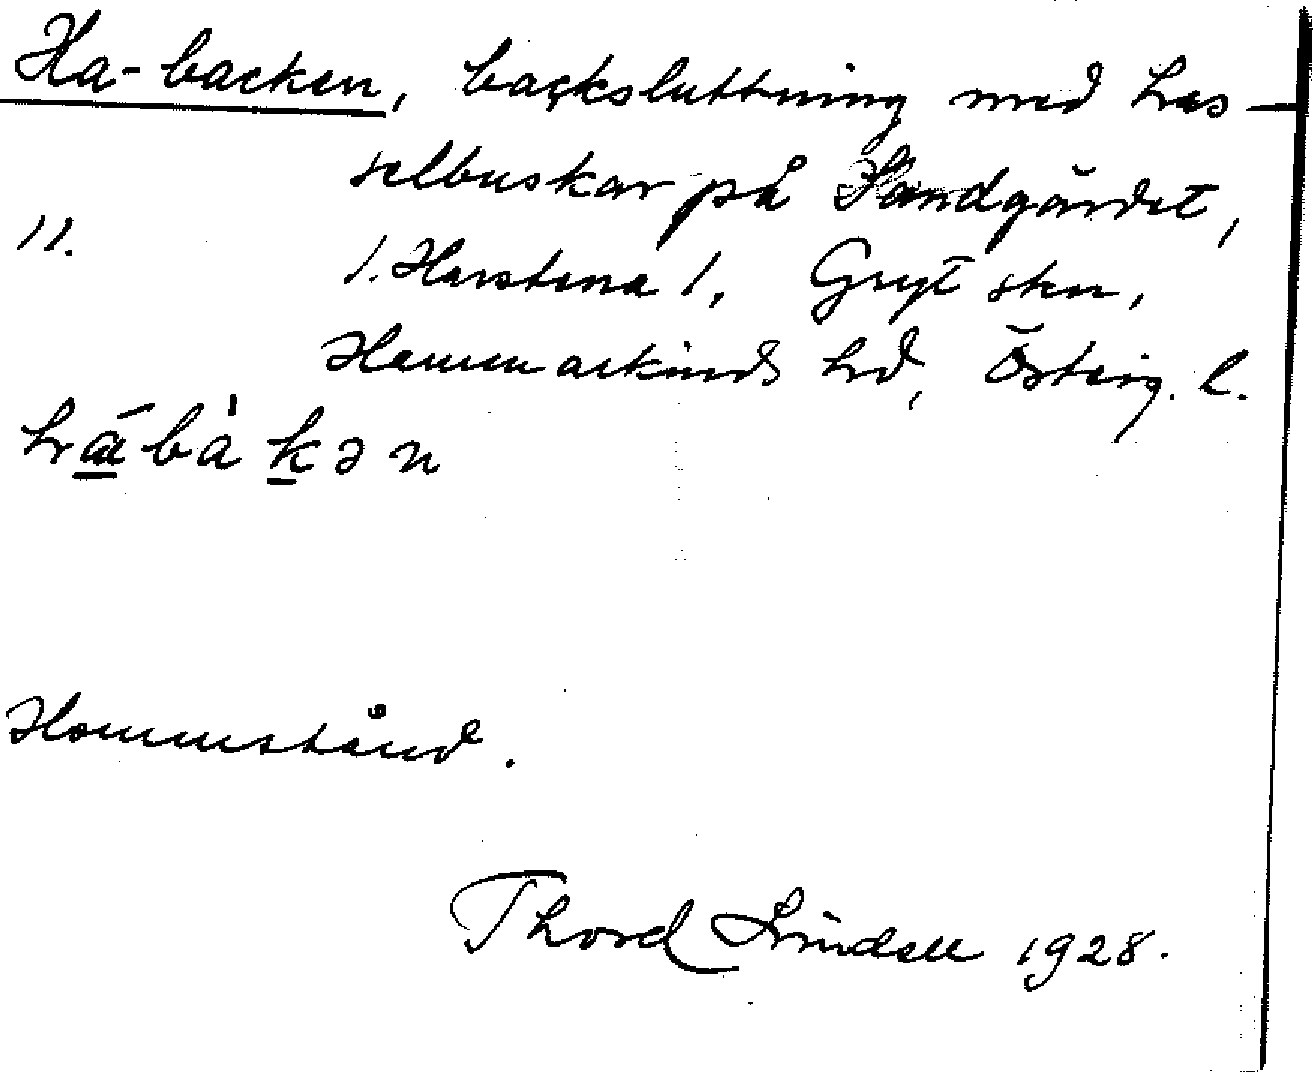 Ha-backen, backsluttning med has-
selbuskar på Sandgärdet,
11.
1. Harstena 1, Gryt skn,
Hammarkinds hd, Österg. l.
hábàkən
Hemmstånd.
Thord Lindell 1928.